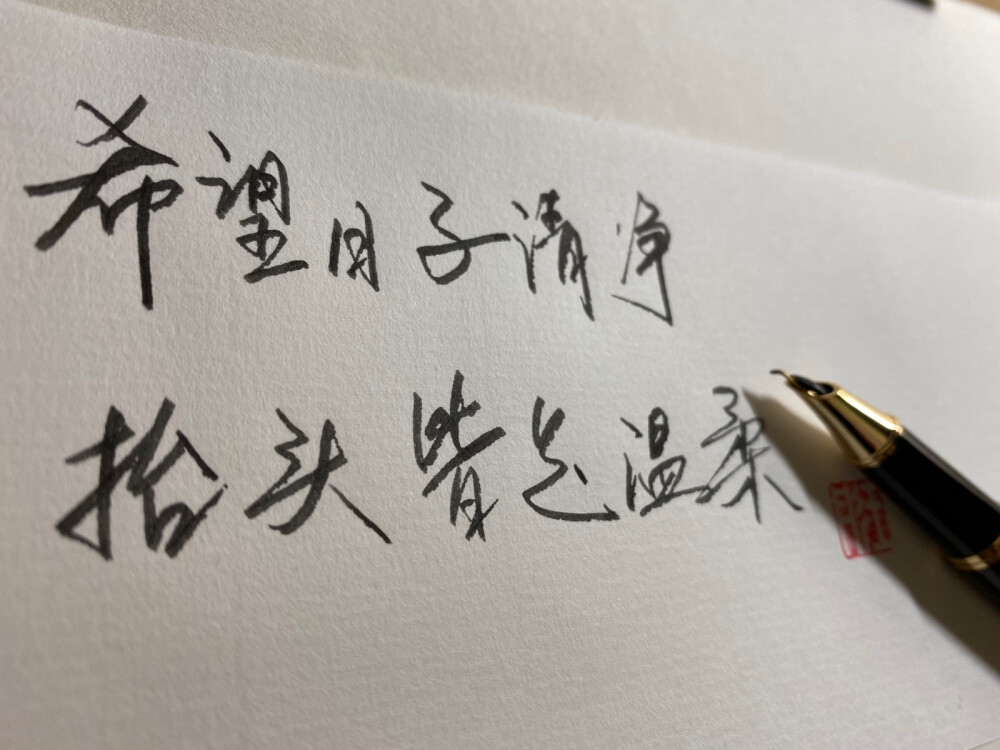 希望日子清净
抬头皆是温柔